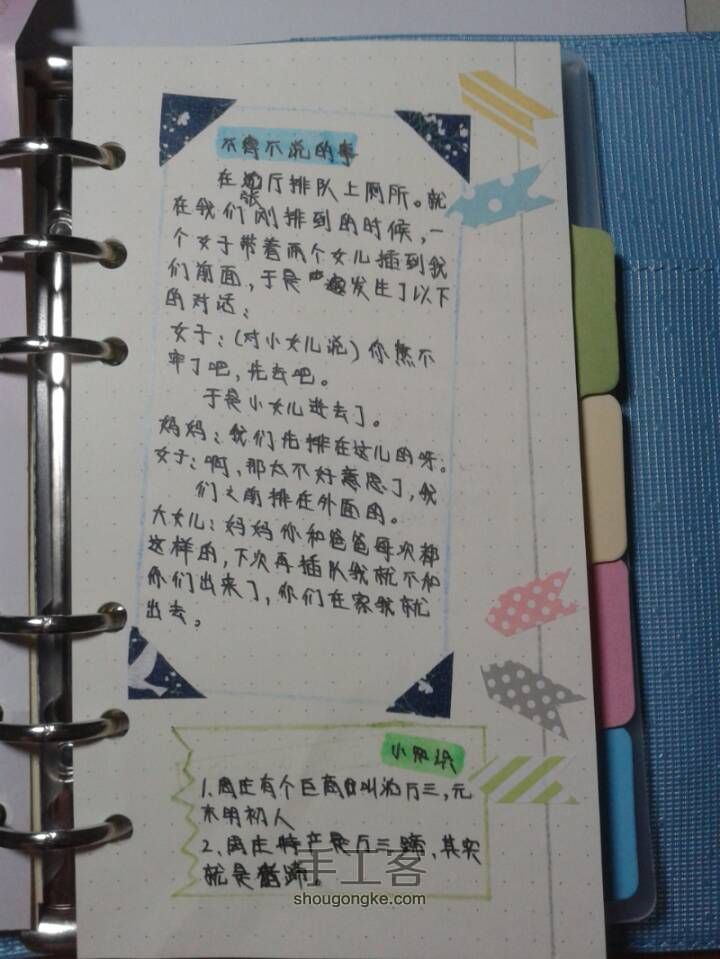 不得不说的事
在张厅排队上厕所。就
在我们刚排到的时候,一
个女子带着两个女儿插到我
们前面,于是发生了以下
的对话:
女子:(对小女儿说)你憋不
牢了吧,先去吧。
于是小女儿进去了。
妈妈:我们先排在这儿的呀。
女子:啊,那太不好意思了,我
们之前排在外面的。
大女儿:妈妈你和爸爸每次都
这样的,下次再插队我就不和
你们出来了,你们在家我就
出去。
小知识
1.周庄有个巨商叫沈万三,元
末明初人
2.周庄特产是万三蹄,其实
就是蹄。
手工客
shougongke.com